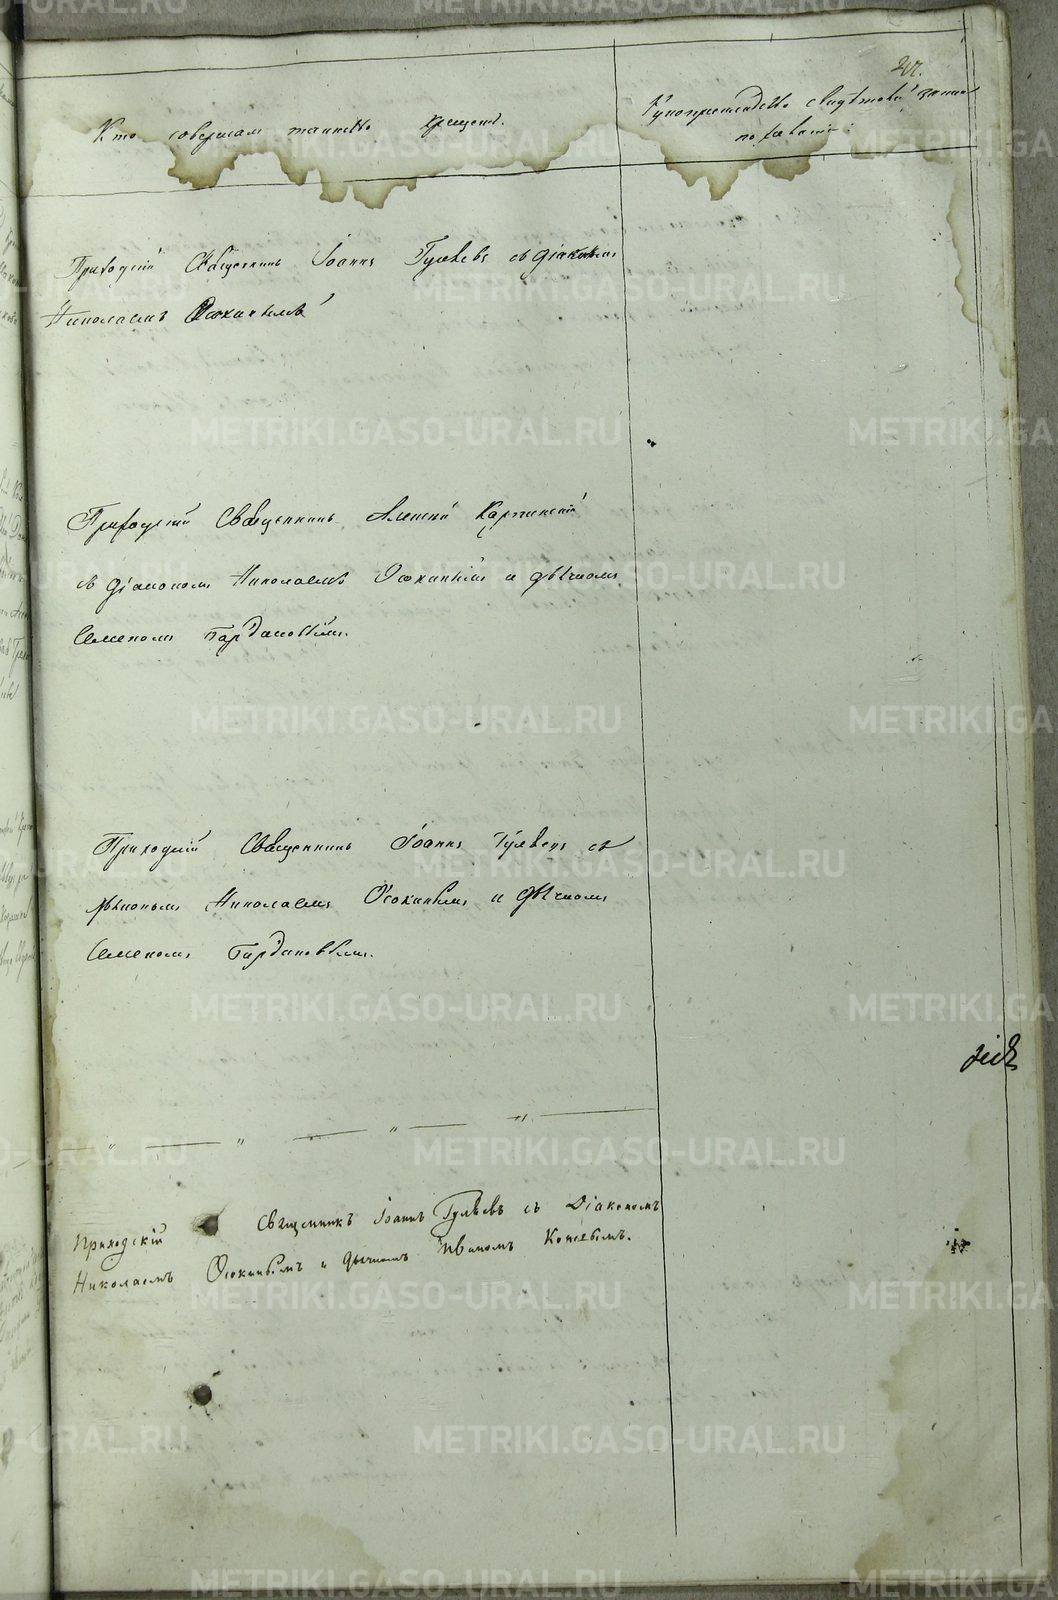 Кто совершал таинство крещенія.
Рукоприкладство свидѣтелей записи
по желанію.
Приходскій Священникъ Іоаннъ Гуляевъ съ діакономъ
Николаемъ Осокинымъ
Приходскій Священникъ Алексій Карпинскій
съ діакономъ Николаемъ Осокинымъ и дьячкомъ
Семеномъ
Приходскій Священникъ Іоаннъ Гуляевъ съ
діакономъ Николаемъ Осокинымъ и дьячкомъ
Семеномъ
Приходскій Священникъ Іоаннъ Гуляевъ съ Діакономъ
Николаемъ Осокинымъ и дьячкомъ Иваномъ
METRIKI.GASO-URAL.RU